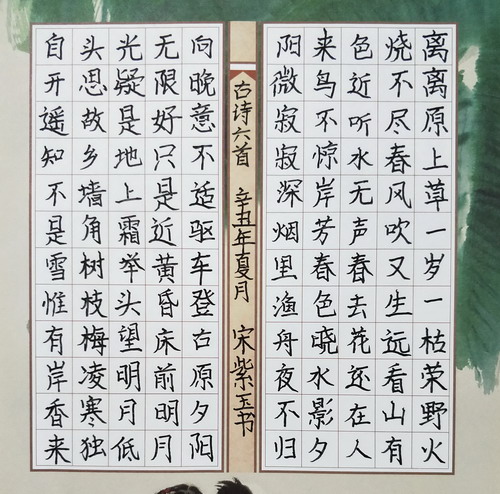 离离原上草一岁一枯荣野火
烧不尽春风吹又生远看山有
色近听水无声春去花还在人
来鸟不惊岸芳春色晓水影夕
阳微寂寂深烟里渔舟夜不归
古诗六首 辛丑年夏月 宋紫玉书
向晚意不适驱车登古原夕阳
无限好只是近黄昏床前明月
光疑是地上霜举头望明月低
头思故乡墙角树枝梅凌寒独
自开遥知不是雪惟有岸香来